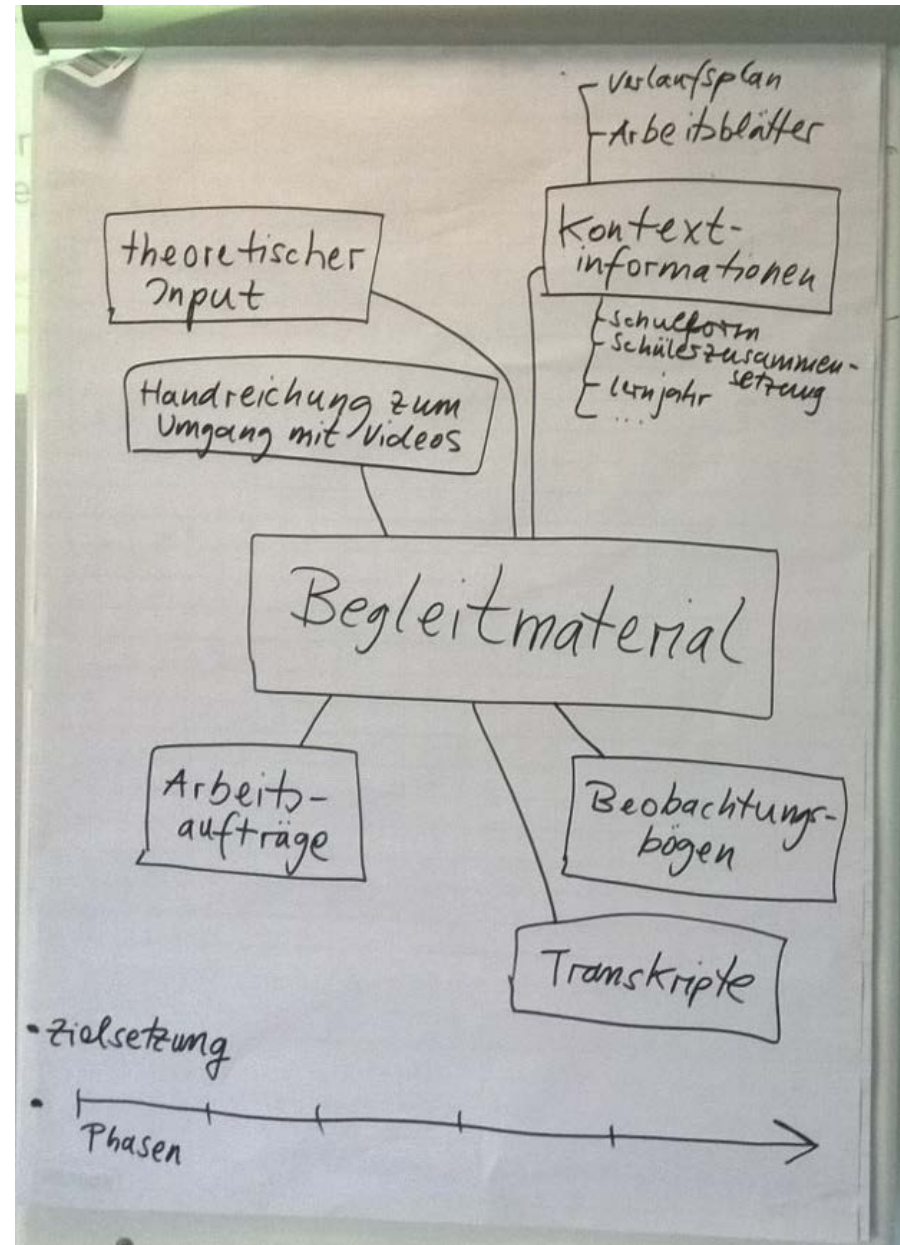 Verlaufsplan
Arbeitsblätter
Kontext-
informationen
Schulform
Schülerzusammen-
setzung
Lernjahr
...
theoretischer
Input
Handreichung zum
Umgang mit Videos
Begleitmaterial
Arbeits-
aufträge
Beobachtungs-
bögen
Transkripte
• Zielsetzung
•
Phasen